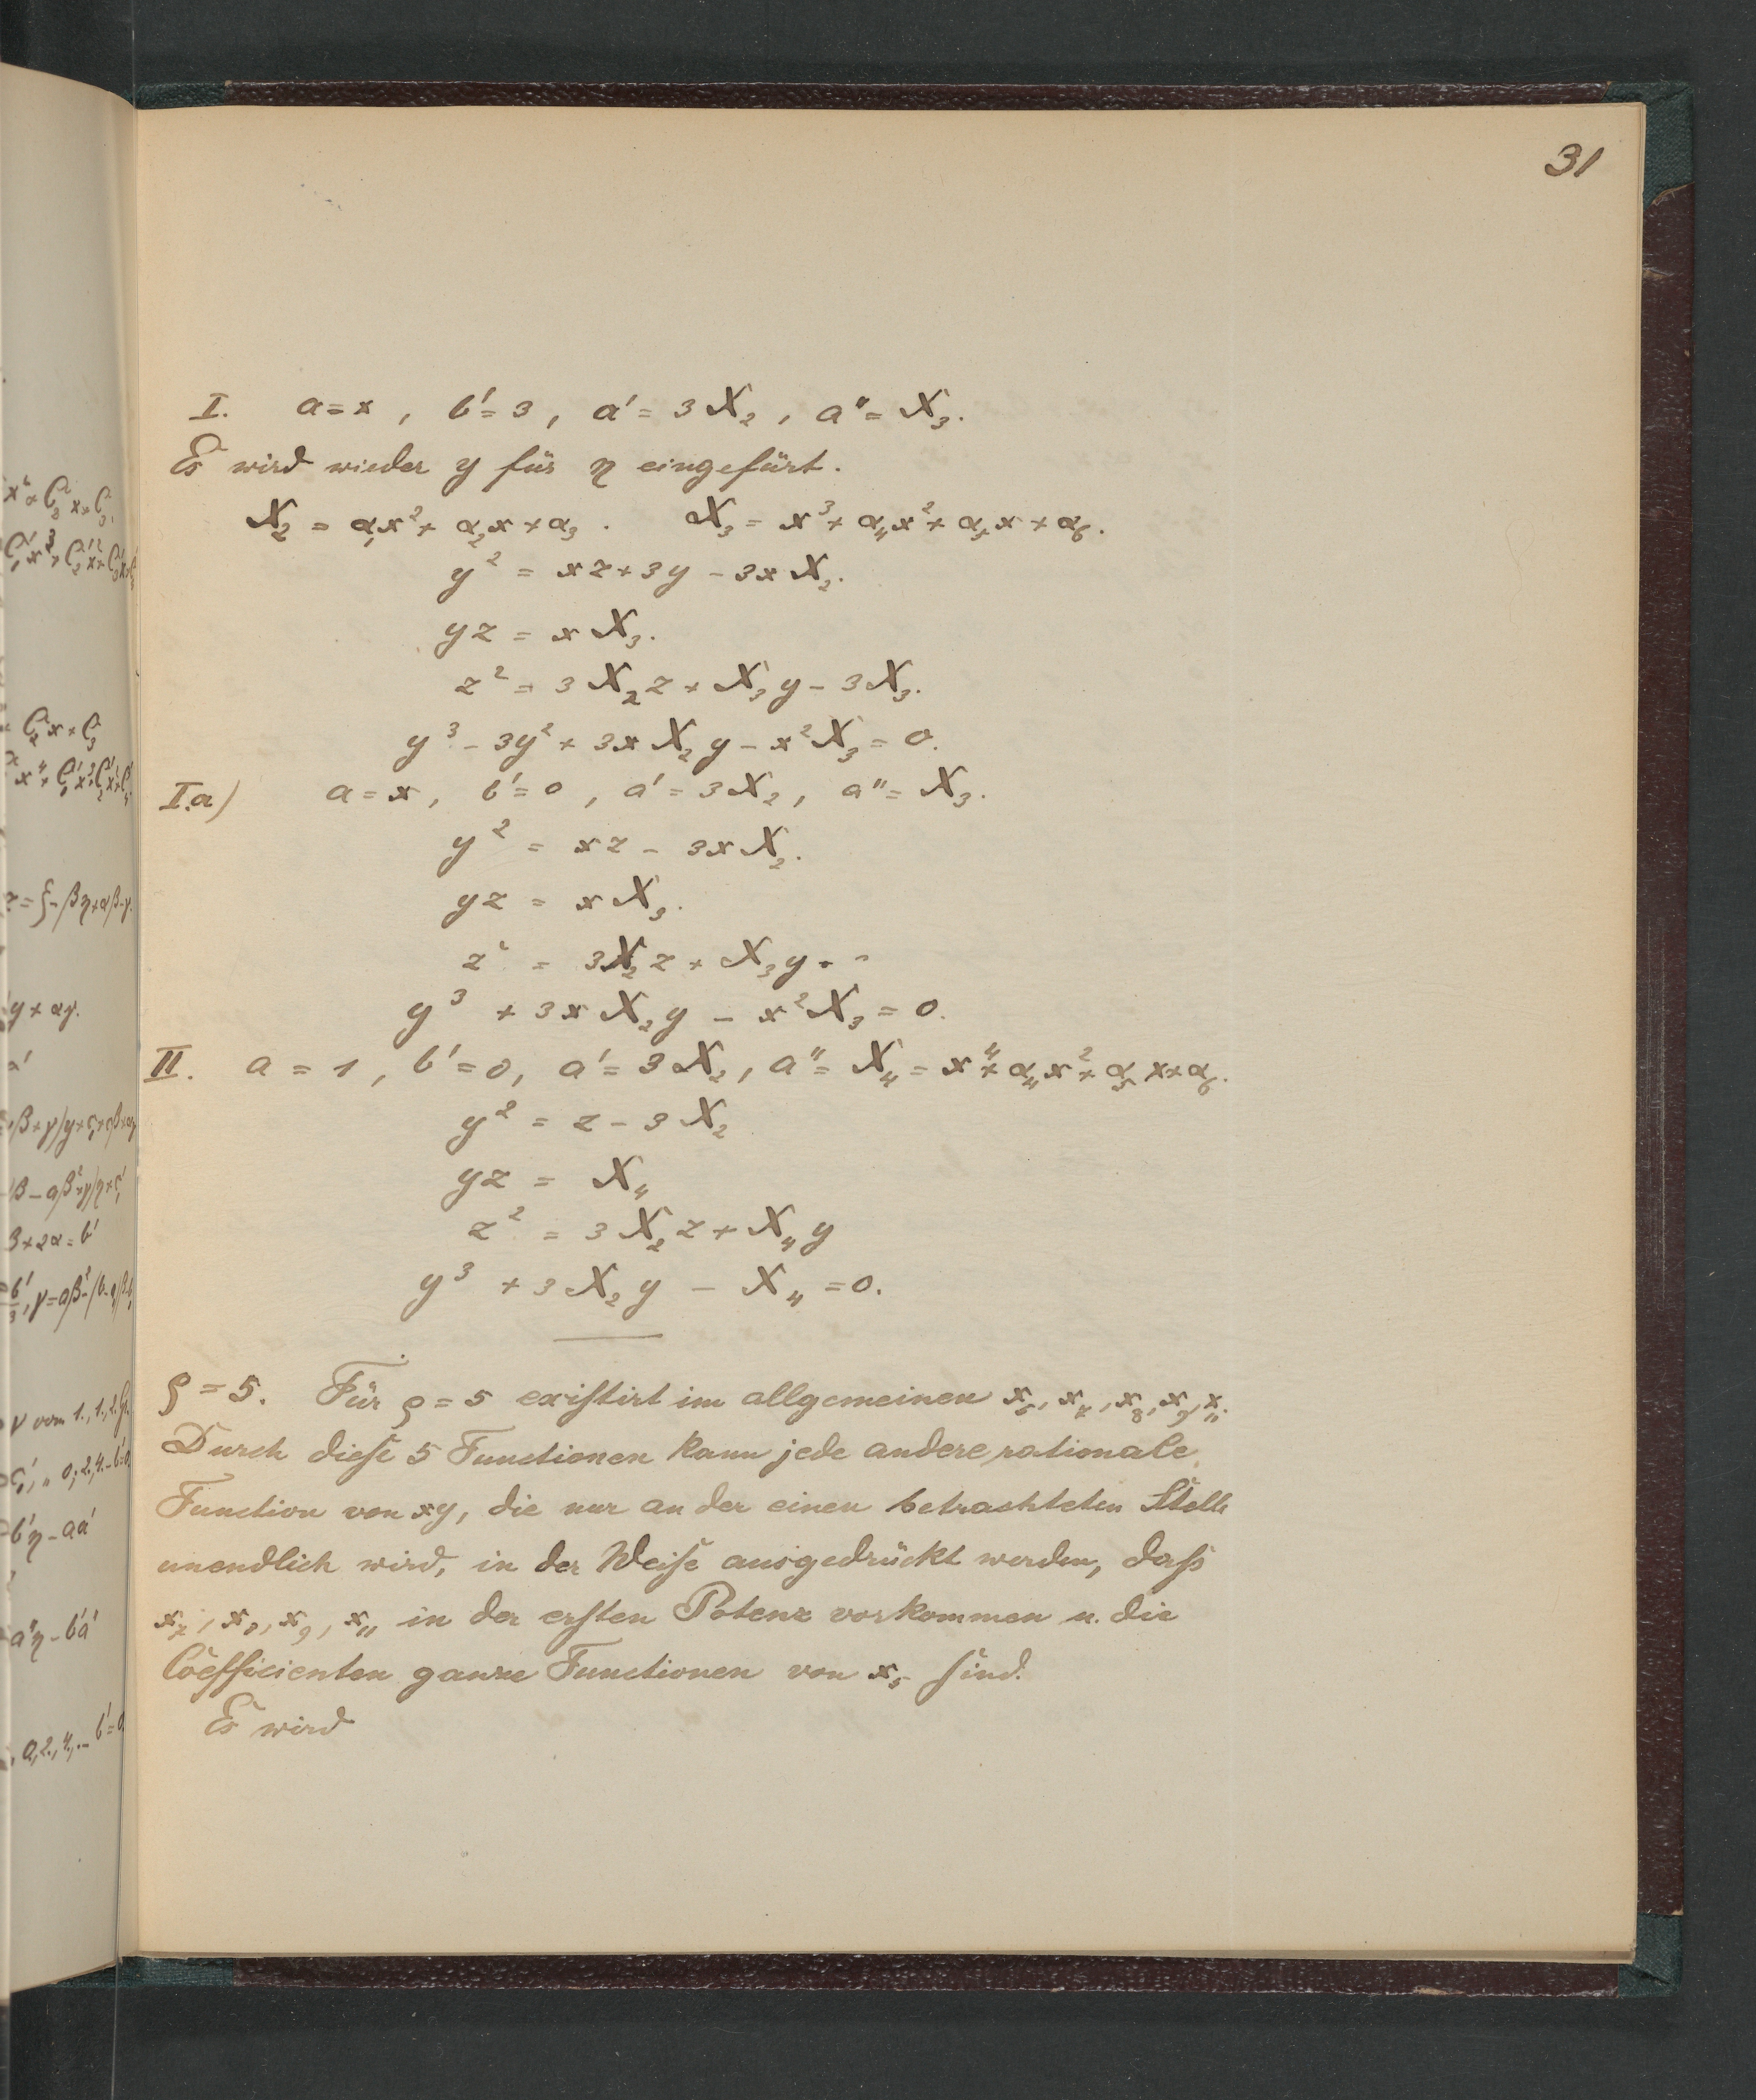 31
I. a = x, b' = 3, a' = 3X₂, a'' = X₃.
Es wird wieder y für η eingefürt.
X₂ = α₁x² + α₂x + α₃. X₃ = x³ + α₄x² + α₅x + α₆.
y² = xz + 3y - 3xX₂.
yz = xX₃.
z² = 3X₂z + X₃y - 3X₃.
y³ - 3y² + 3xX₂y - x²X₃ = 0.
I.a) a = x, b' = 0, a' = 3X₂, a'' = X₃.
y² = xz - 3xX₂.
yz = xX₃.
z² = 3X₂z + X₃y
y³ + 3xX₂y - x²X₃ = 0.
II. a = 1, b' = 0, a' = 3X₂, a'' = X₄ = x⁴ + α₄x² + α₅x + α₆.
y² = z - 3X₂
yz = X₄
z² = 3X₂z + X₄y
y³ + 3X₂y - X₄ = 0.
ρ = 5. Für ρ = 5 existirt im allgemeinen x₅, x₇, x₈, x₉, x₁₁.
Durch diese 5 Functionen kann jede andere rationale
Function von xy, die nur an der einen betrachteten Stelle
unendlich wird, in der Weise ausgedrückt werden, dass
x₇, x₈, x₉, x₁₁ in der ersten Potenz vorkommen u. die
Coefficienten ganze Functionen von x₅ sind.
Es wird